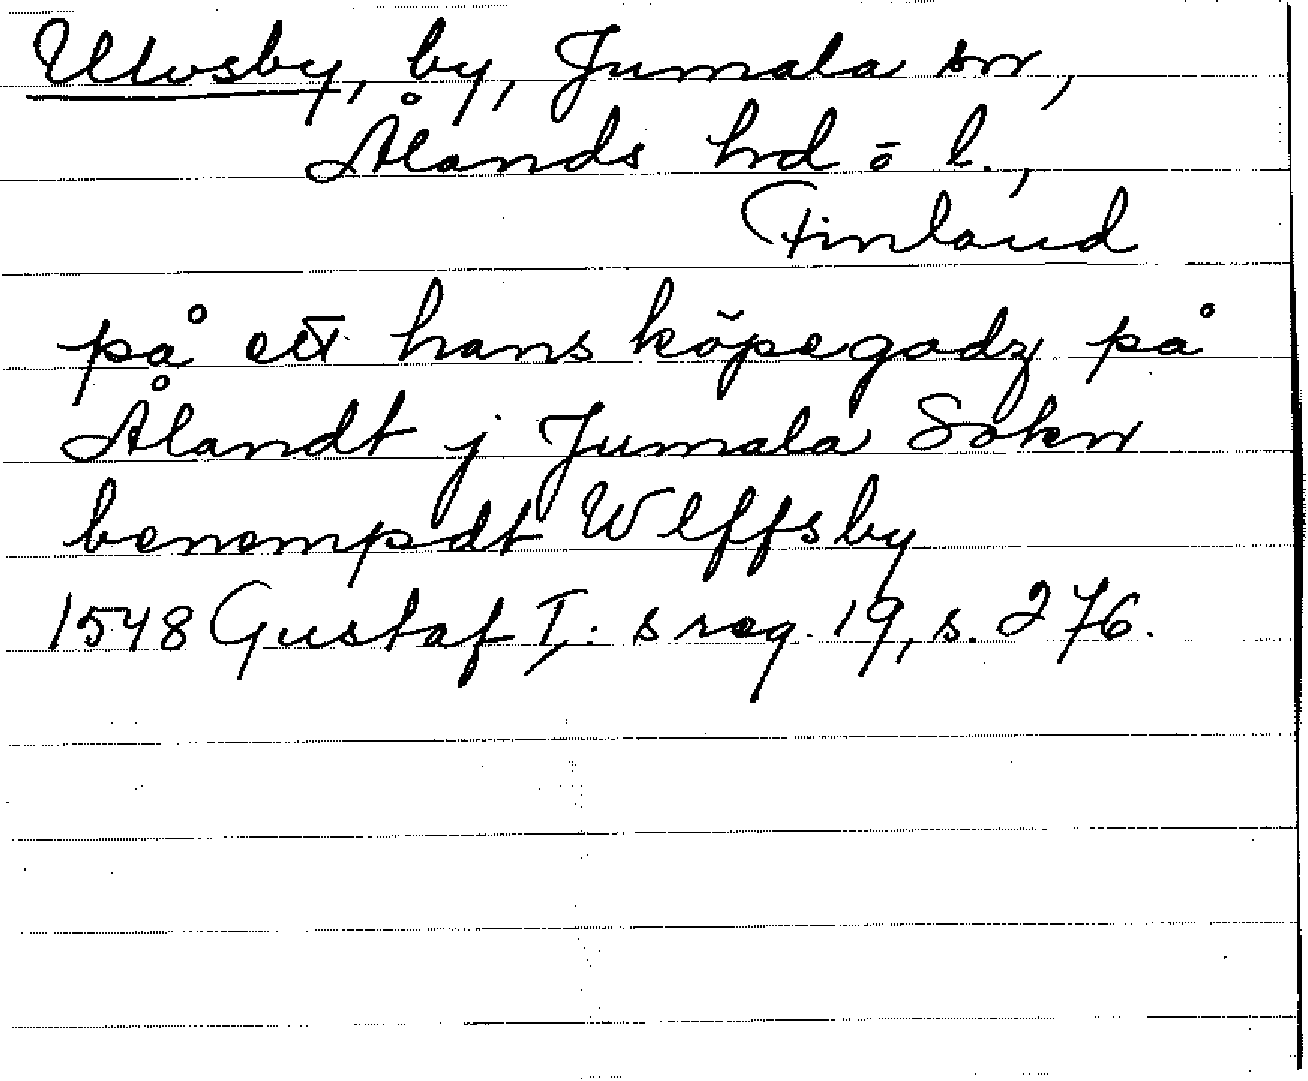 Ulvsby, by, Jumala sn,
Ålands hrd o l.,
Finland
på ett hans köpegodz på
Ålandt j Jumala Sokn
benempdt Wlffsby
1548 Gustaf I: s reg. 19, s. 276.